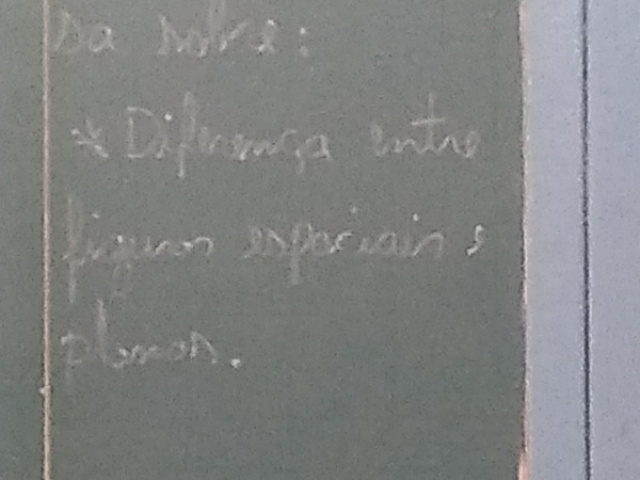 sa sobre:
* Diferença entre
figuras espaciais e
planas.